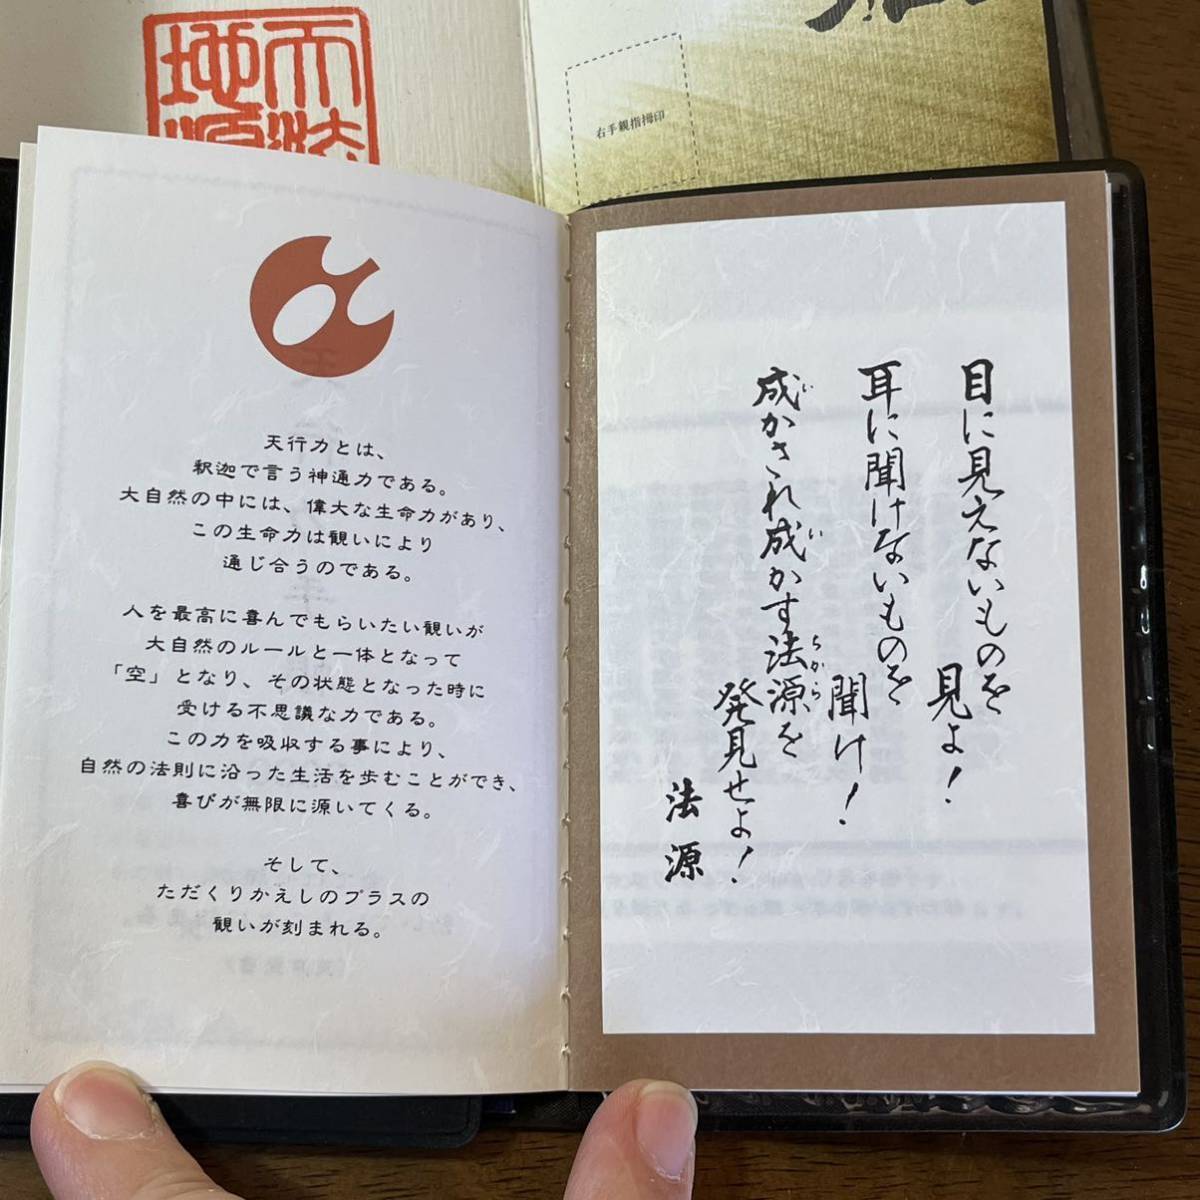 右手親指拇印
天行力とは、
釈迦で言う神通力である。
大自然の中には、偉大な生命力があり、
この生命力は観いにより
通じ合うのである。
人を最高に喜んでもらいたい観いが
大自然のルールと一体となって
「空」となり、その状態となった時に
受ける不思議な力である。
この力を吸収する事により、
自然の法則に沿った生活を歩むことができ、
喜びが無限に源いてくる。
そして、
ただくりかえしのプラスの
観いが刻まれる。
目に見えないものを
見よ！
耳に聞けないものを
聞け！
成かされ成かす法源を
発見せよ！
法源